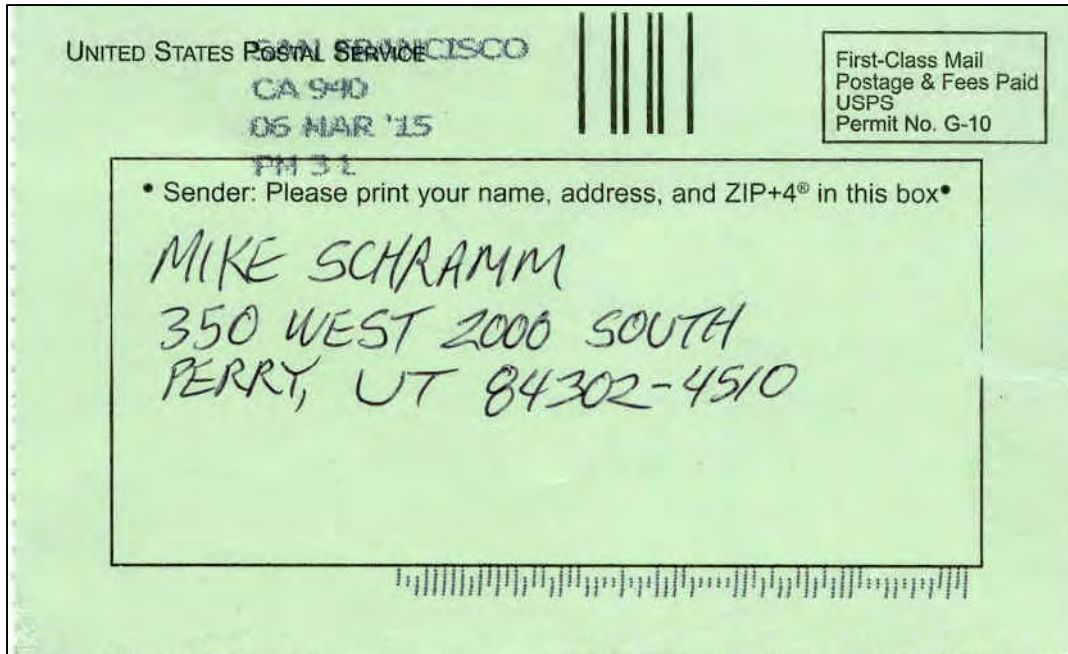 UNITED STATES POSTAL SERVICE
SAN FRANCISCO
CA 940
06 MAR '15
PM 3 L
First-Class Mail
Postage & Fees Paid
USPS
Permit No. G-10
• Sender: Please print your name, address, and ZIP+4® in this box•
MIKE SCHRAMM
350 WEST 2000 SOUTH
PERRY, UT 84302-4510